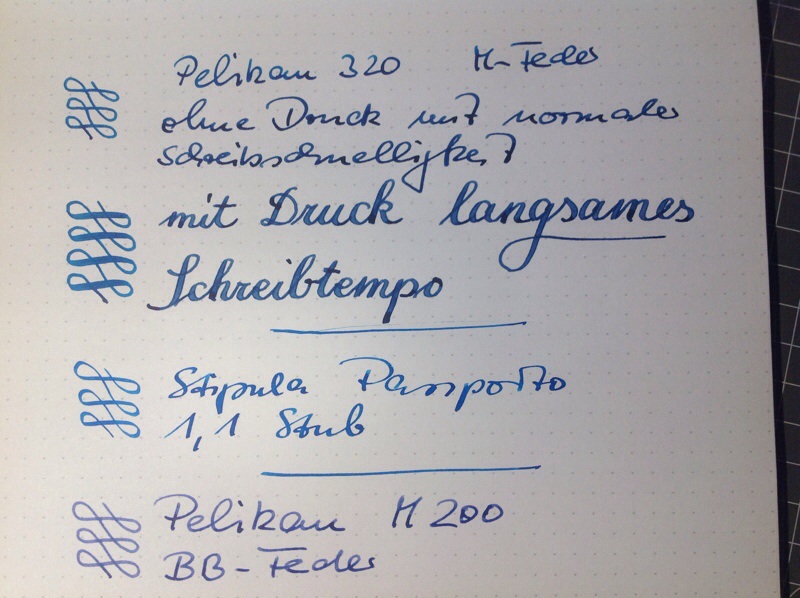 Pelikan 320 M-Feder
ohne Druck mit normaler
Schreibschnelligkeit
mit Druck langsames
Schreibtempo
Stipula Passporto
1,1 Stub
Pelikan M 200
BB-Feder